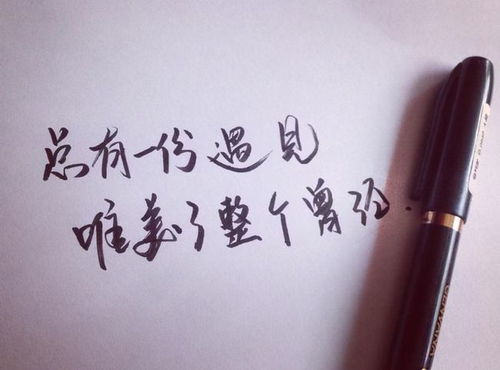 总有一份遇見
唯美了整个曾经.